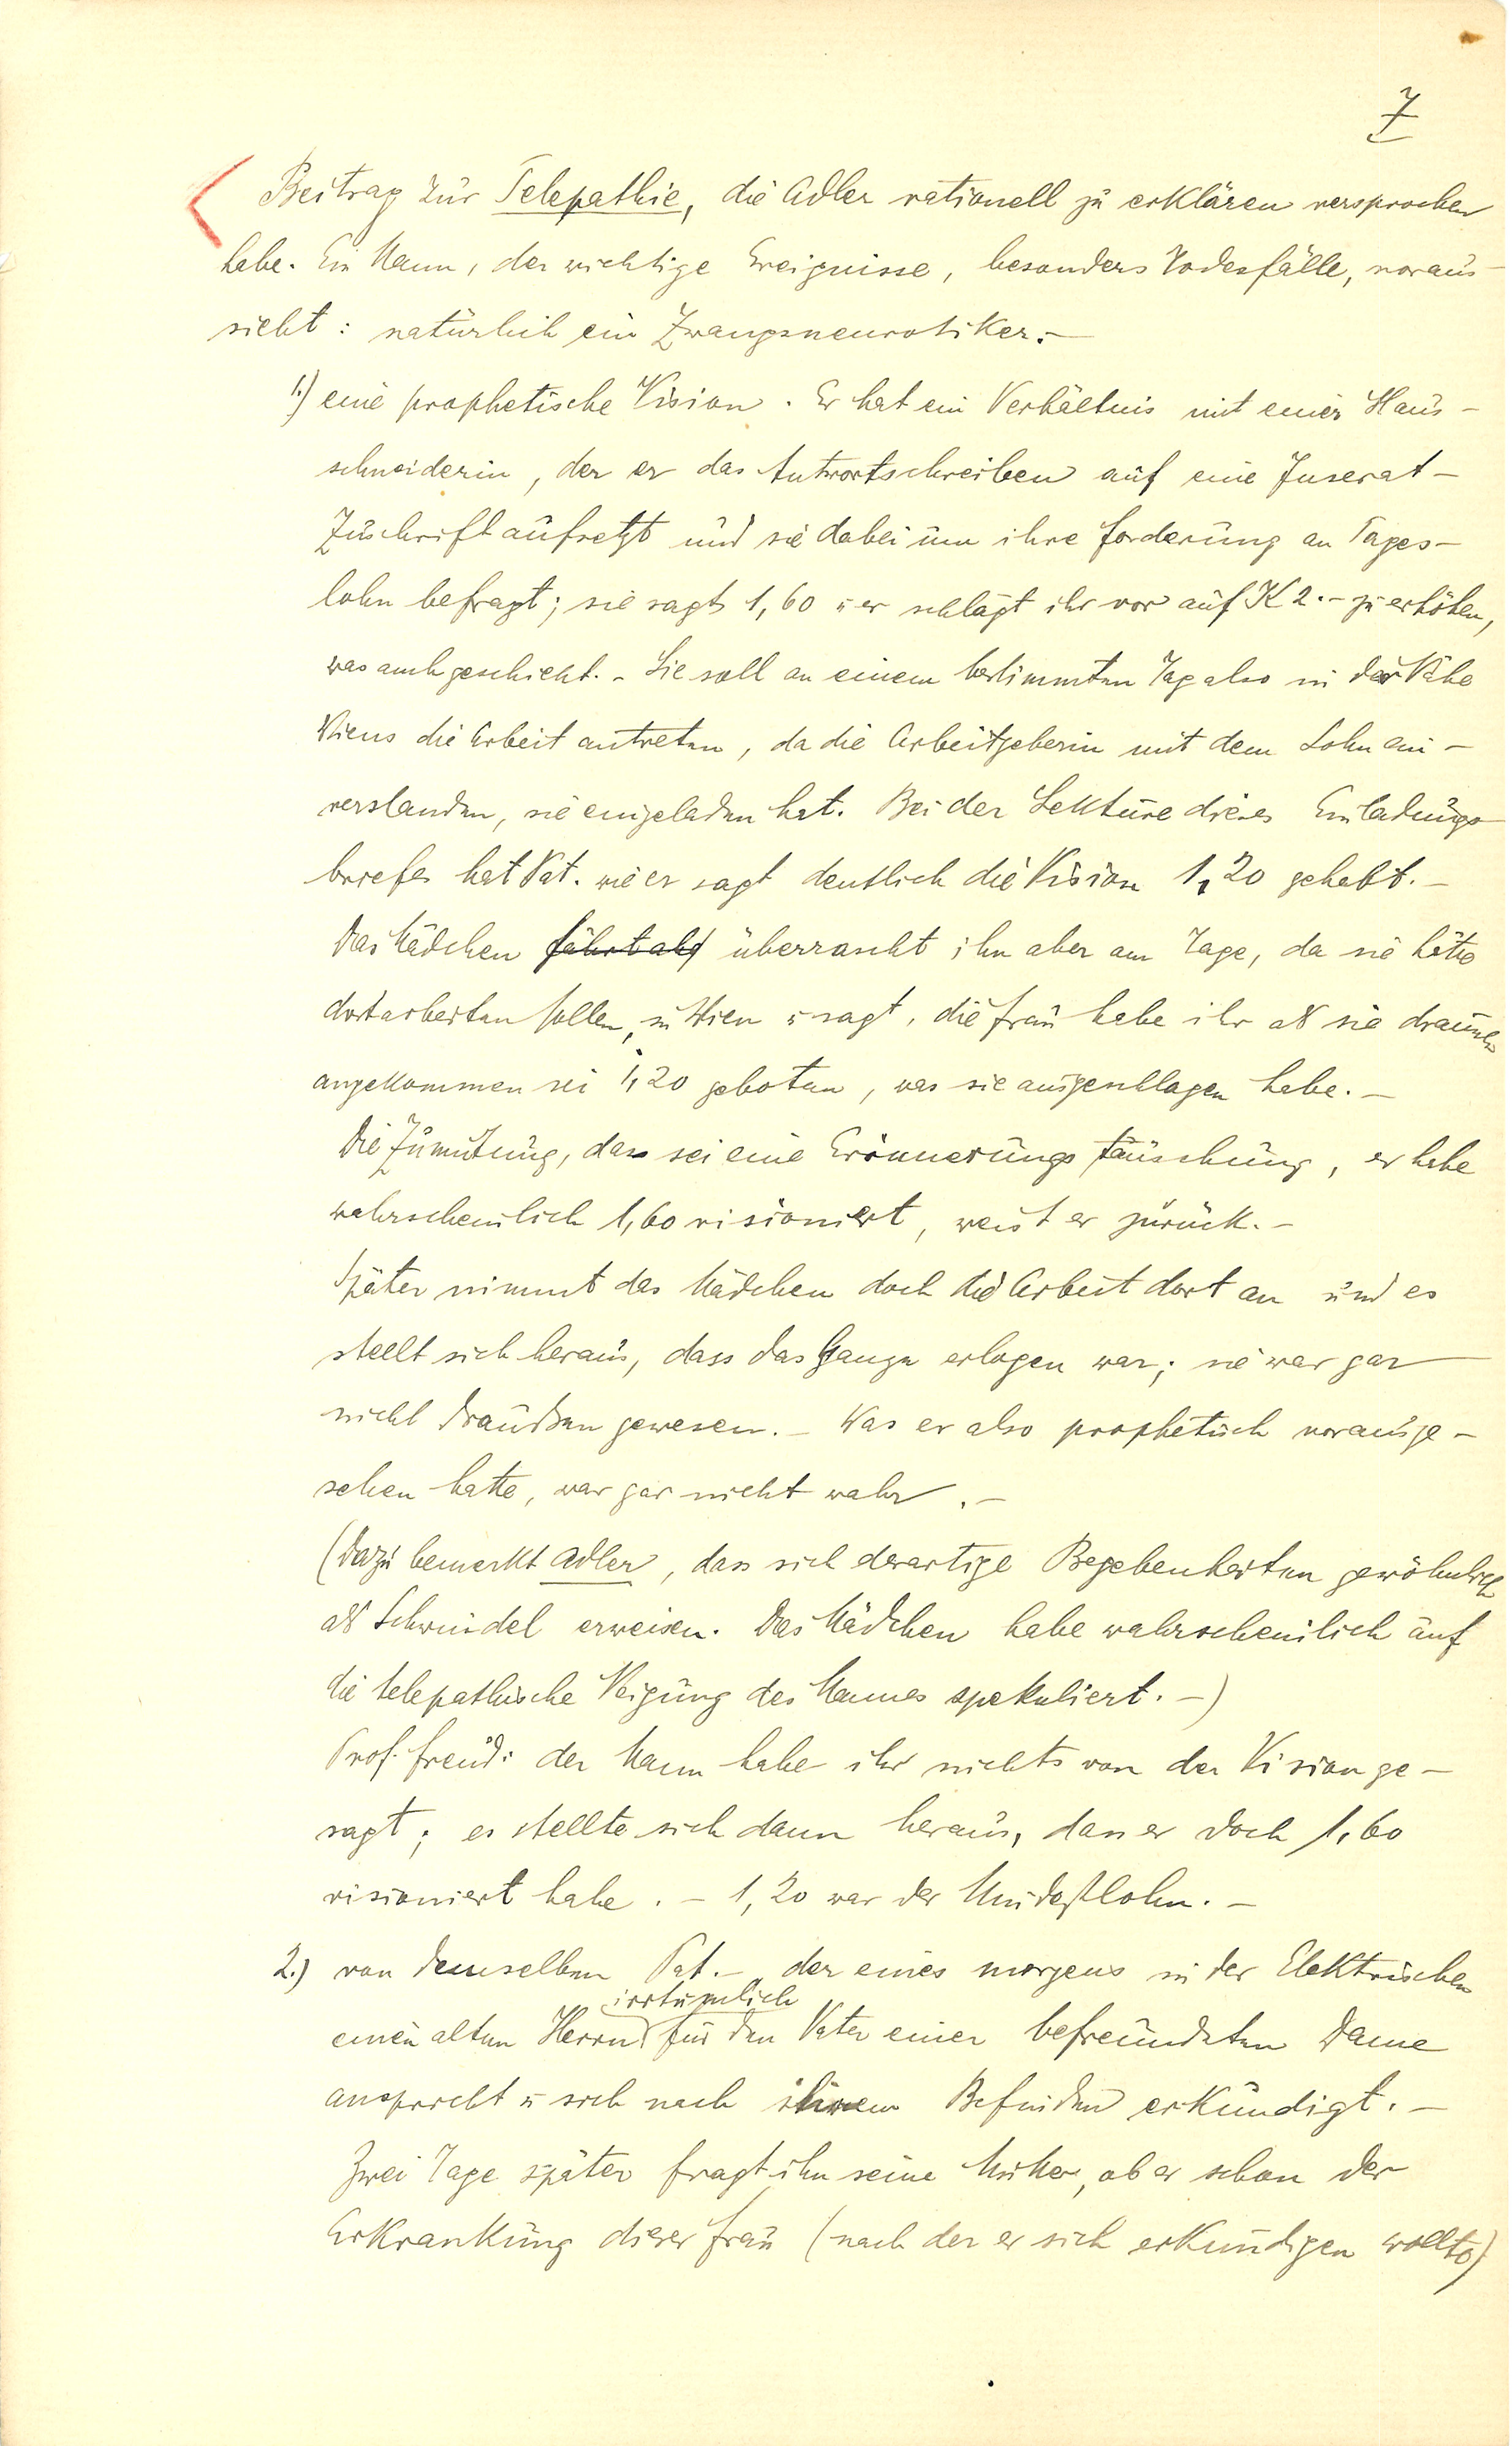 7
Beitrag zur Telepathie, die Adler rationell zu erklären versprochen
habe. Ein Mann, der wichtige Ereignisse, besonders Todesfälle, voraus-
sieht: natürlich ein Zwangsneurotiker.–
1.) eine prophetische Vision. Er hat ein Verhältnis mit einer Haus-
schneiderin, der er das Antwortschreiben auf eine Inserat-
Zuschrift aufsetzt und sie dabei um ihre Forderung an Tages-
lohn befragt; sie sagt 1,60 u er schlägt ihr vor auf K 2.– zu erhöhen,
was auch geschieht. – Sie soll an einem bestimmten Tag also in der Nähe
Wiens die Arbeit antreten, da die Arbeitgeberin mit dem Lohn ein-
verstanden, sie eingeladen hat. Bei der Lektüre dieses Einladungs-
briefes hat Pat. wie er sagt deutlich die Vision 1,20 gehabt. –
Das Mädchen fährt ab überrascht ihn aber am Tage, da sie hätte
dort arbeiten sollen, in Wien u sagt, die Frau habe ihr als sie draußen
angekommen sei 1,20 geboten, was sie ausgeschlagen habe. –
Die Zumutung, das sei eine Erinnerungstäuschung, er habe
wahrscheinlich 1,60 visioniert, weist er zurück. –
Später nimmt das Mädchen doch die Arbeit dort an und es
stellt sich heraus, dass das Ganze erlogen war; sie war gar
nicht draußen gewesen. – Was er also prophetisch vorausge-
sehen hatte, war gar nicht wahr. –
(Dazu bemerkt Adler, dass sich derartige Begebenheiten gewöhnlich
als Schwindel erweisen. Das Mädchen habe wahrscheinlich auf
die telepathische Neigung des Mannes spekuliert. –)
Prof. Freud: der Mann habe ihr nichts von der Vision ge-
sagt; es stellte sich dann heraus, dass er doch 1,60
visioniert habe. – 1,20 war der Mindestlohn. –
2.) von demselben Pat. –, der eines morgens in der Elektrischen
irrtümlich
einen alten Herrn für den Vater einer befreundeten Dame
anspricht u sich nach ihrem Befinden erkundigt. –
Zwei Tage später fragt ihn seine Mutter, ob er schon der
Erkrankung dieser Frau (nach der er sich erkundigen wollte)